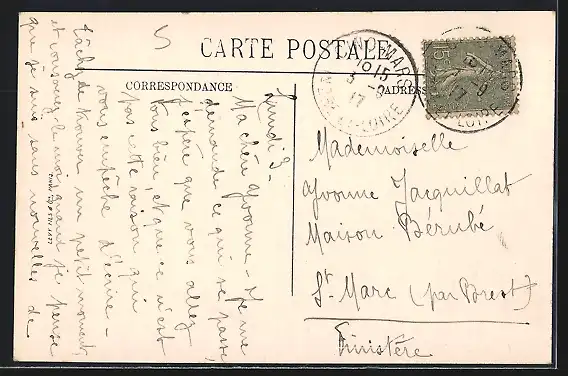 CARTE POSTALE
CORRESPONDANCE
ADRESSE
MARS
10 15
3 - 9
17
LOIRE
15
MARS
17
LOIRE
Lundi 3 -
Ma chère Yvonne - Je me
demande ce qui se passe,
j'espère que vous allez
bien, et que ce n'est
pas cette raison qui
vous empêche d'écrire -
Tâchez de trouver un petit moment,
et vous serez le mot, quand je pense
que je suis sans nouvelles de
LEVY FILS & Cie PARIS
Mademoiselle
Yvonne Jacquillat
Maison Bérubé
St Marc (par Brest)
Finistère